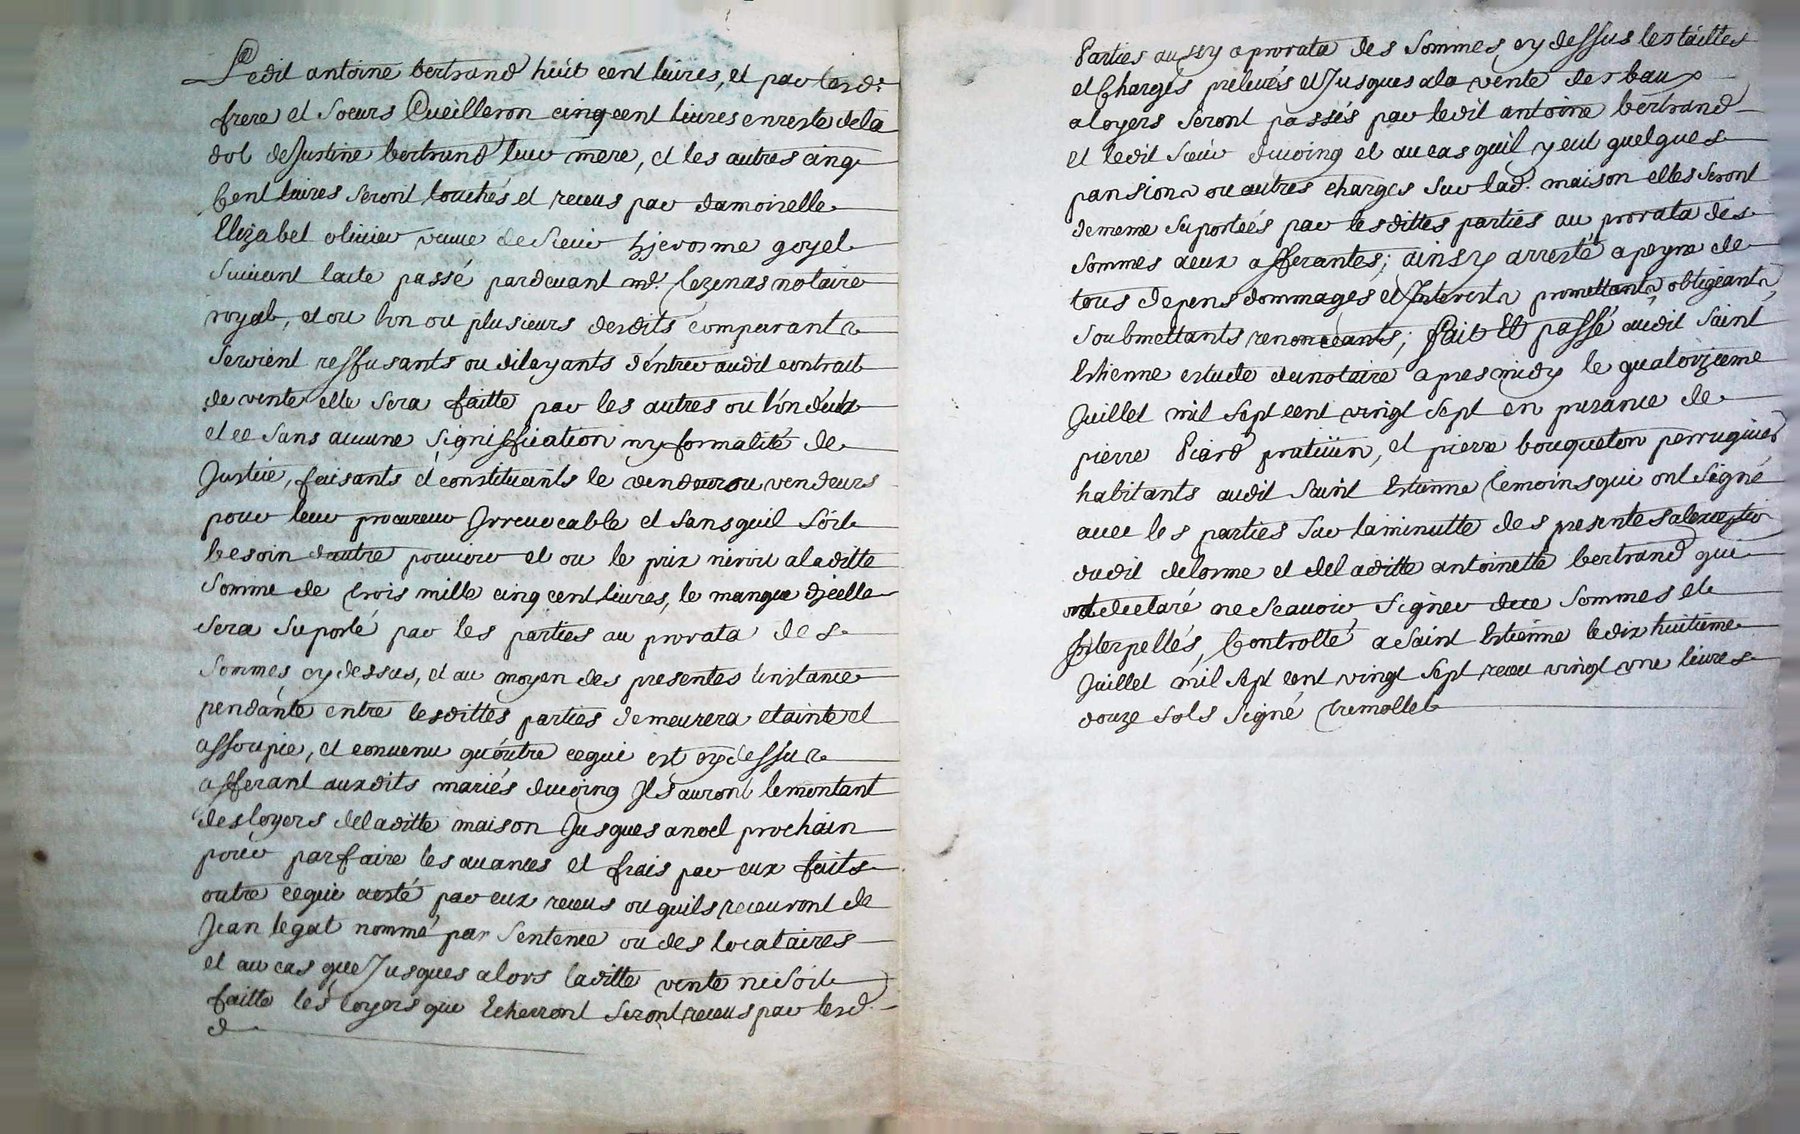 Ledit antoine bertrand huit cent livres, et par lesd.
frere et soeurs Cueilleron cinq cent livres en reste de la
dot de Justine bertrand leur mere, et les autres cinq
Cent livres seront touchés et receus par damoiselle
Elizabet olivier veuve de Sieur hjerosme goyet
Suivant l'acte passé pardevant me. Cezenas notaire
royal, et ou l'on ou plusieurs desdits comparants
seroient reffusants ou dilayants d'entrer audit contrait
de vente elle sera faitte par les autres ou l'un d'eux
et ce sans aucune signiffication ny formalité de
Justice, faisants et constituants le vendeur ou vendeurs
pour leur procureur Jrrevocable et sans quil soit
besoin d'autre pouvoir et ou le prix n'iroit a laditte
somme de trois mille cinq cent livres, le manque djcelle
sera suporté par les parties au prorata des
sommes cy dessus, et au moyen des presentes l'instance
pendánte entre lesdittes parties demeurera etainte et
assoupie, et convenu qu'outre cequi est cy dessus
afferant auxdits mariés ducoing Jls auront le montant
des loyers de laditte maison Jusques a noel prochain
pour parfaire les avances et frais par eux faits
outre cequi a esté par eux receus ou quils recevront de
Jean legat nommé par sentence ou des locataires
et au cas que Jusques alors laditte vente ne soit
faitte les loyers que Echerront seront receus par lesd.
d
Parties aussy a prorata des sommes cy dessus les tailles
et Charges prelevés et Jusques a la vente des baux
a loyers seront passés par ledit antoine bertrand
et ledit sieur ducoing et au cas quil y eut quelques
pansions ou autres charges sur lad. maison elles seront
de meme suportées par lesdittes parties au prorata des
sommes a eux afferantes; ainsy arresté a peyne de
tous depens dommages et Jnterests promettants obligeants
soubmettants renonceants; fait Et passé audit Saint
Estienne estude du notaire apres midy le quatorzieme
Juillet mil sept cent vingt sept en presance de
pierre Picard praticien, et pierre bouqueton perruquier
habitants audit Saint Estienne temoins qui ont signé
avec les parties sur la minutte des presentes a l'exceptio
dudit delorme et de laditte antoinette bertrand qui
ont declaré ne Scavoir Signer de ce sommes et
Jnterpellés, Controllé a Saint Estienne le dix huitieme
Juillet mil sept cent vingt sept receu vingt une livres
douze sols signé tremollet